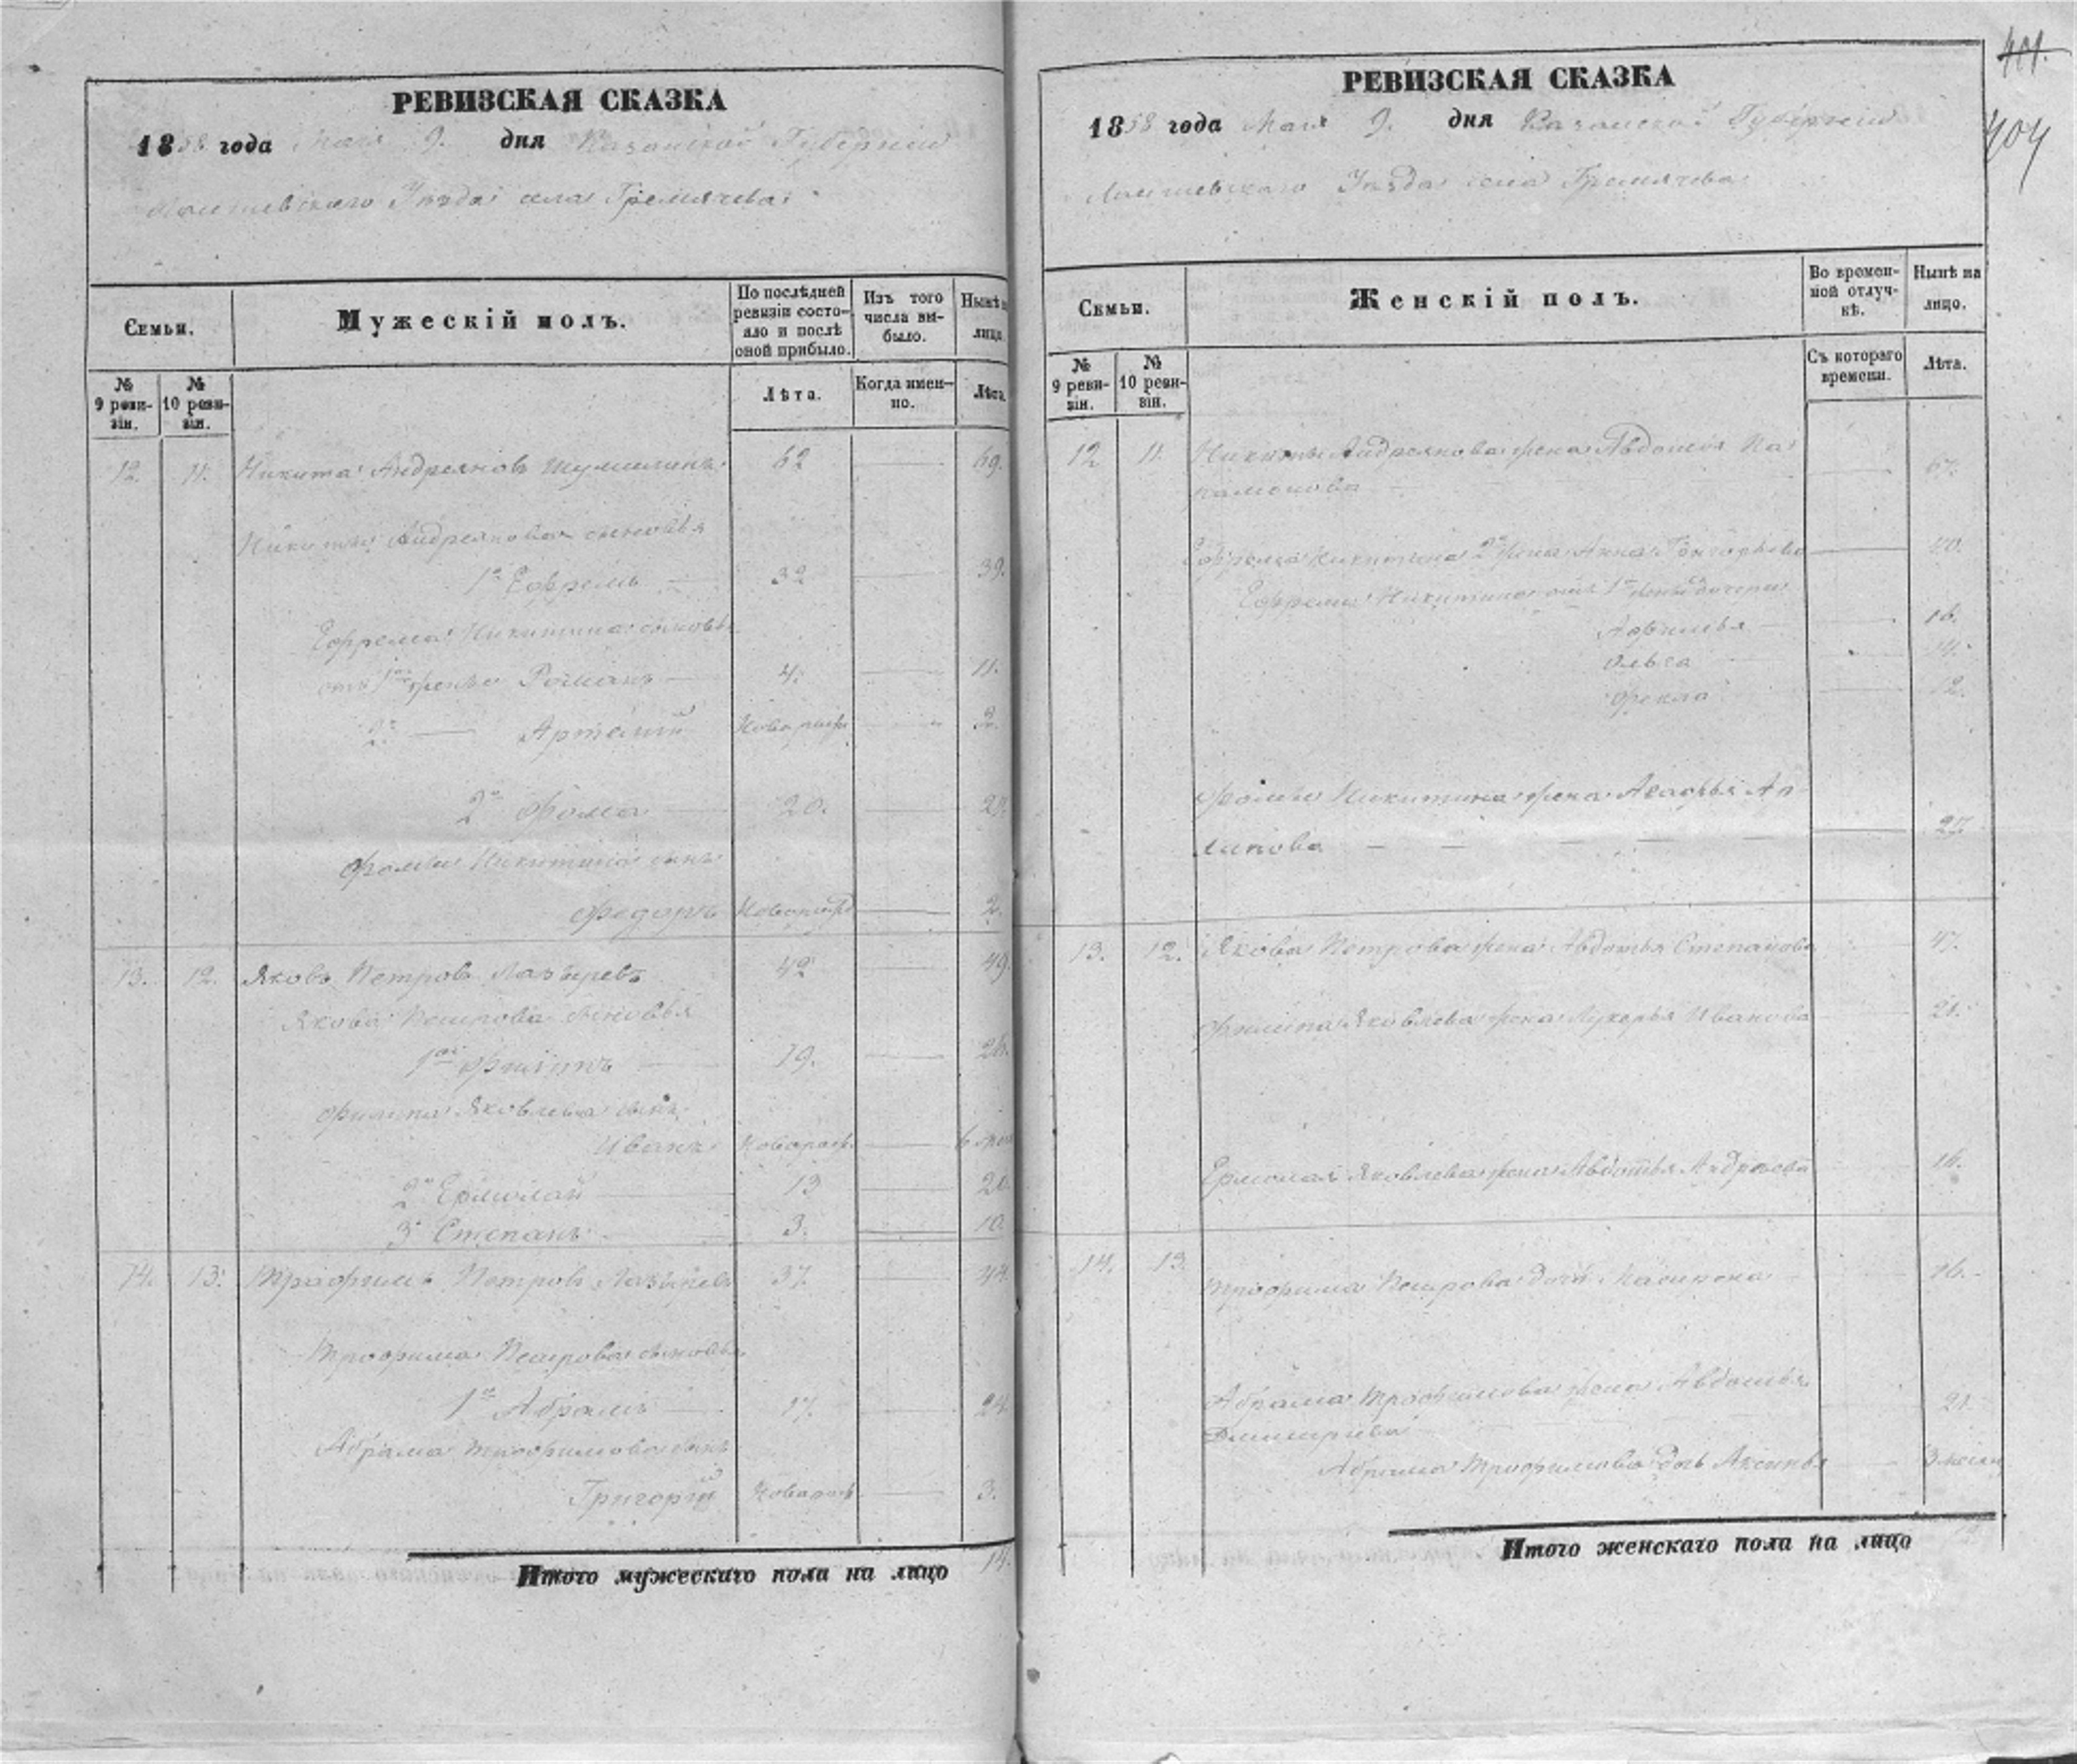 401.
404
РЕВИЗСКАЯ СКАЗКА
1858 года Мая 9. дня Казанской Губернии
Лаишевскаго Уѣзда села Гремячева
Семьи.
Мужескій полъ.
По послѣдней ревизіи состояло и послѣ оной прибыло.
Изъ того числа выбыло.
Нынѣ на лицо.
№ 9 ревизіи.
№ 10 ревизіи.
Лѣта.
Когда именно.
Лѣта.
12. 11. Никита Андреяновъ 62 69.
Никиты Андреянова сыновья
1й Ефремъ 32 39.
Ефрема Никитина сыновья
отъ 1й жены Романъ 4. 11.
2й Артемій Новорож 2.
2й Фома 20. 27.
Фомы Никитина сынъ
Федоръ Новорож 2.
13. 12. Яковъ Петровъ Лазыревъ 42 49.
Якова Петрова сыновья
1й Филипъ 19. 26.
Филипа Яковлева сынъ
Иванъ Новорож
2й Ермолай 13 20
3й Степанъ 3. 10
14. 13. Трофимъ Петровъ Лазыревъ 37. 44.
Трофима Петрова сыновья
1й Абрамъ 17. 24.
Абрама Трофимова сынъ
Григорій Новорож 3.
Итого мужескаго пола на лицо 14.
РЕВИЗСКАЯ СКАЗКА
1858 года Мая 9. дня Казанской Губерніи
Лаишевскаго Уѣзда села Гремячева
Семьи.
Женскій полъ.
Во временной отлучкѣ.
Нынѣ на лицо.
№ 9 ревизіи.
№ 10 ревизіи.
Съ котораго времени.
Лѣта.
12 11 Никиты Андреянова жена Авдотья Па
рамонова 67.
Ефрема Никитина 2я жена Анна Григорьева 40.
Ефрема Никитина отъ 1й жены дочери
16.
Ольга 14.
Фекла 12.
Фомы Никитина жена Агафья Ар
хипова 27.
13. 12. Якова Петрова жена Авдотья Степанова 47.
Филипа Яковлева жена Лукерья Иванова 21.
Ермолая Яковлева жена Авдотья Андреева
14. 13 Трофима Петрова дочь 16.
Абрама Трофимова жена Авдотья
Дмитриева 21.
Абрама Трофимова дочь Аксинья
Итого женскаго пола на лицо